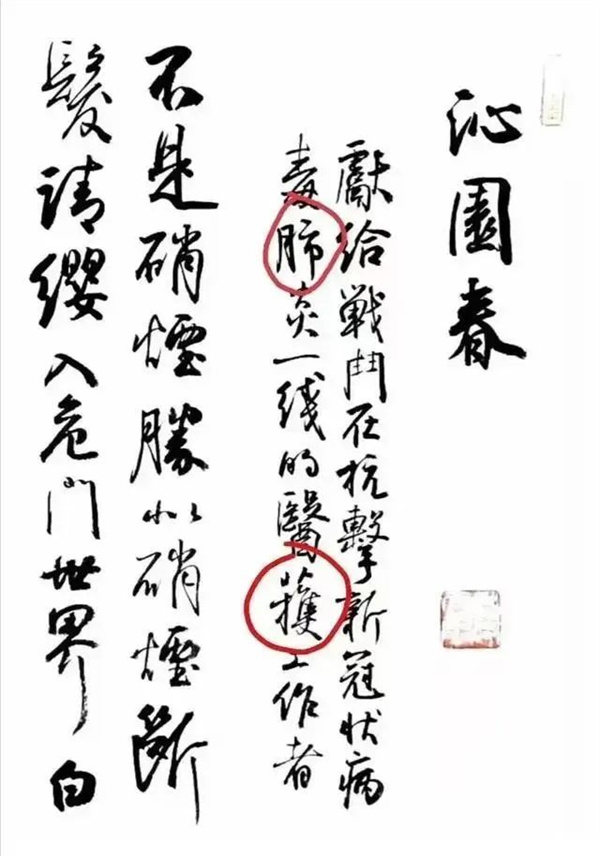 沁園春
獻給戰鬥在抗擊新冠狀病
毒肺炎一线的醫䕶工作者
不是硝煙勝似硝煙斷
髮請纓入危門世界白